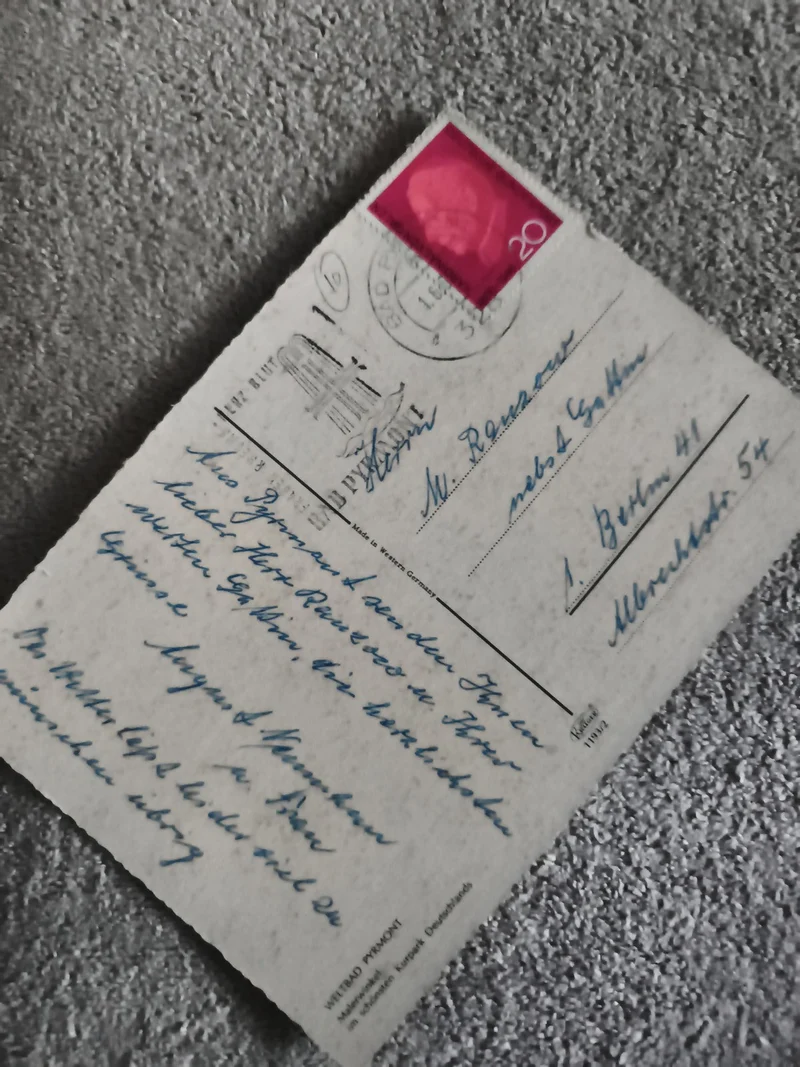 Aus Pyrmont senden Ihnen
lieber Herr Ransow u. Ihrer
werten Gattin, die herzlichsten
Grüsse
August Neumann
u. Frau
Das Wetter läßt leider viel zu
wünschen übrig
20
BAD P
1.
3280
HERZ BLUT
BAD PYRMONT
Herrn
M. Ransow
nebst Gattin
1. Berlin 41
Albrechtstr. 54
Made in Western Germany
1193/2
WELTBAD PYRMONT
Malerwinkel
im schönsten Kurpark Deutschlands